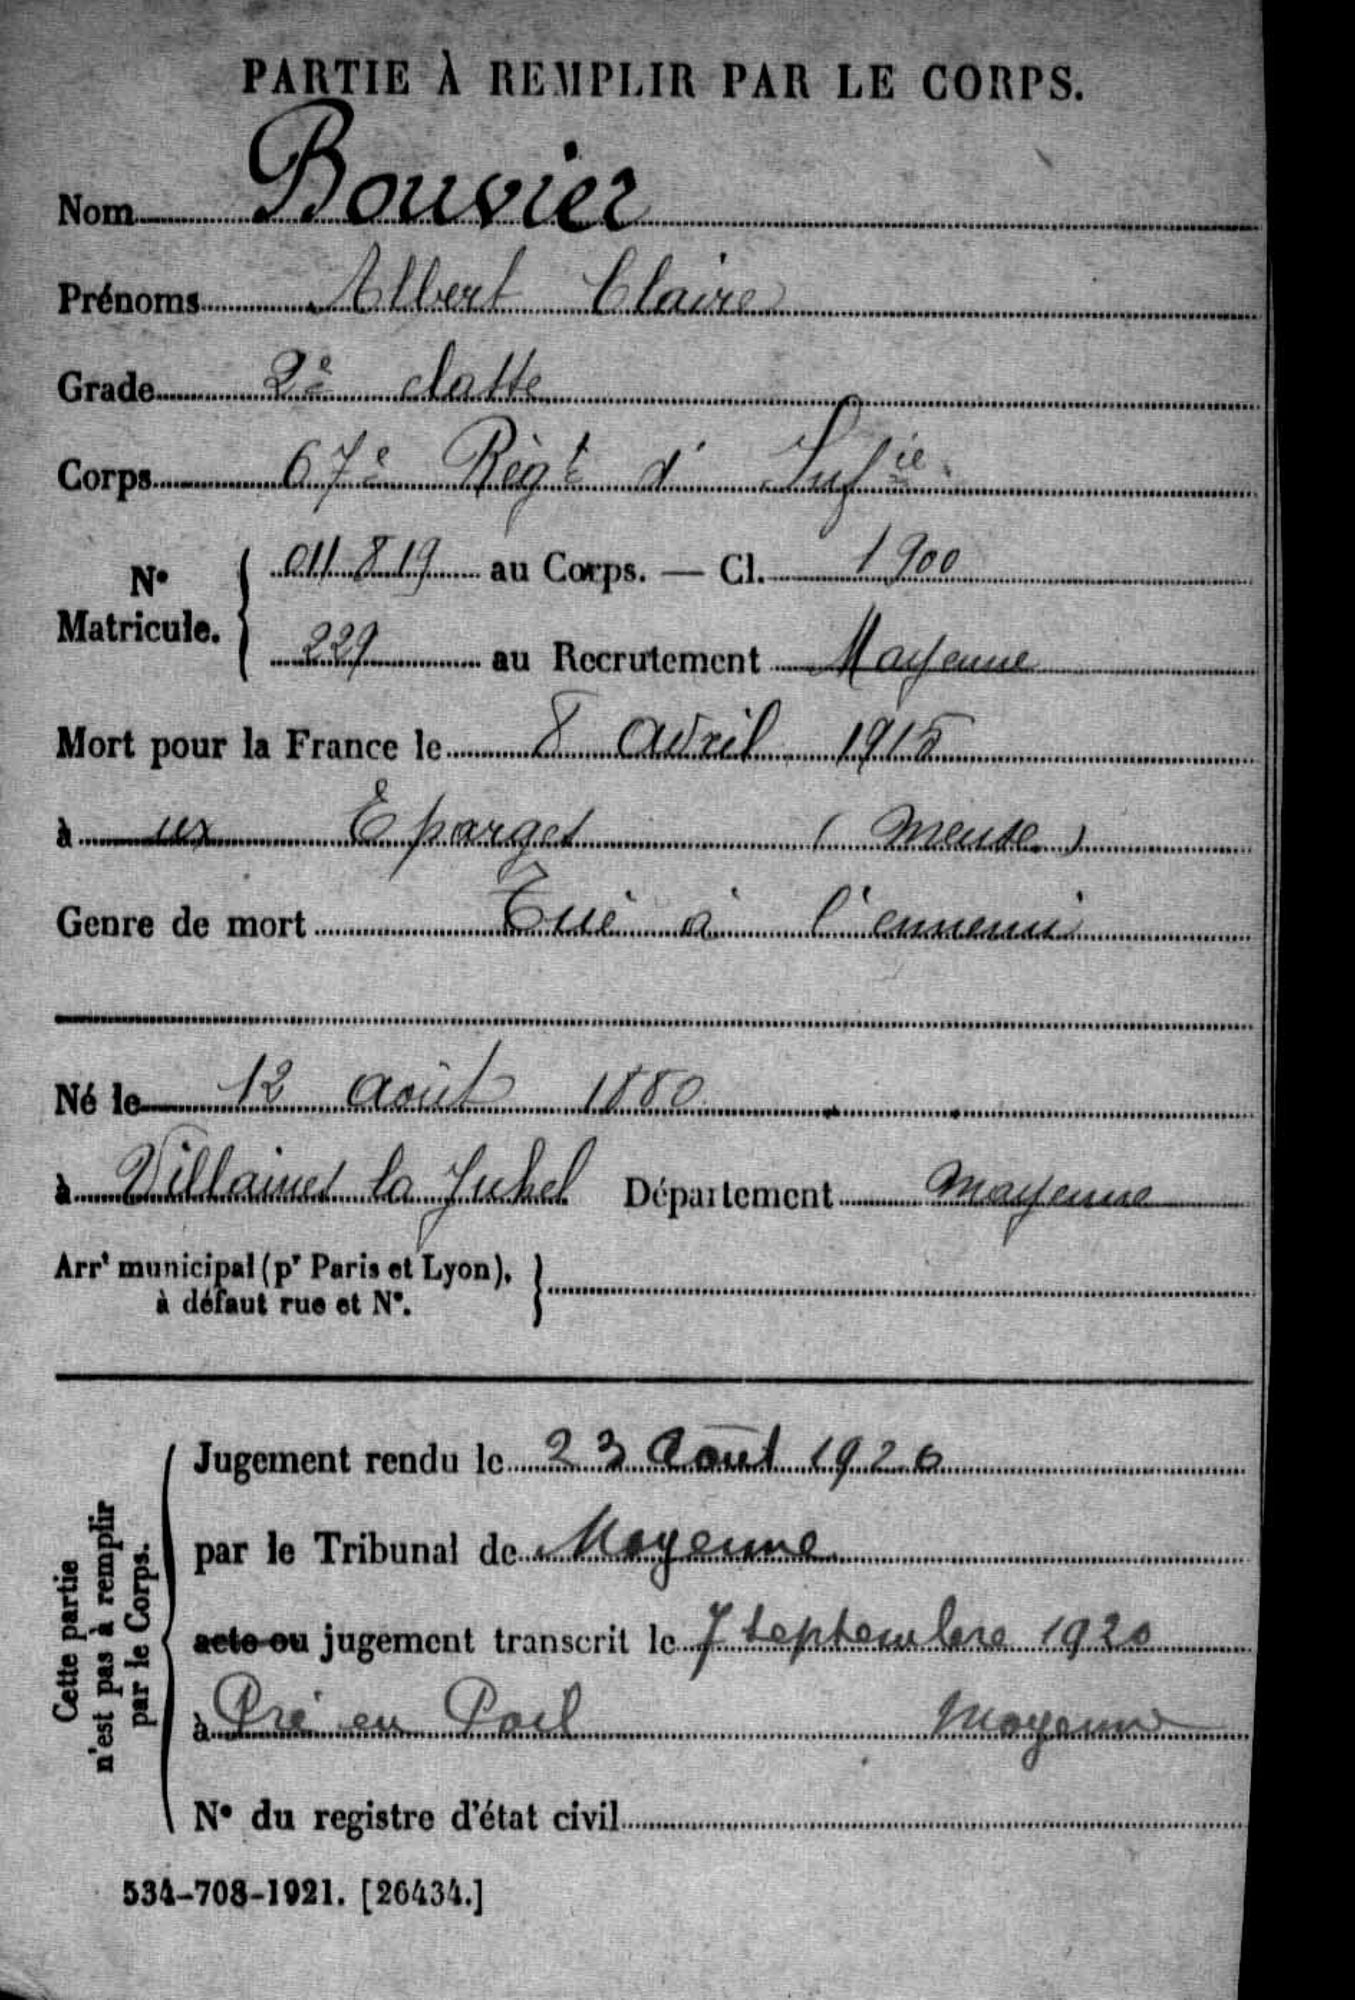 PARTIE À REMPLIR PAR LE CORPS.
Nom Bouvier
Prénoms Albert Claire
Grade 2e classe
Corps 67e Régt d'Infie
No Matricule. 011819 au Corps. — Cl. 1900
229 au Recrutement Mayenne
Mort pour la France le 8 avril 1915
à ux Eparges (Meuse)
Genre de mort Tué à l'ennemi
Né le 12 août 1880
à Villaines la Juhel Département Mayenne
Arrt municipal (pr Paris et Lyon),
à défaut rue et No.
Cette partie
n'est pas à remplir
par le Corps.
Jugement rendu le 23 août 1920
par le Tribunal de Mayenne
acte ou jugement transcrit le 7 septembre 1920
à Pré en Pail Mayenne
No du registre d'état civil
534-708-1921. [26434.]